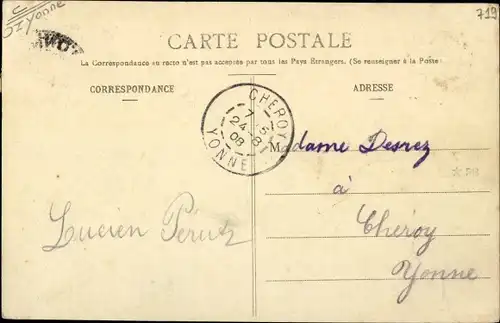 C
51 Yonne
719
CARTE POSTALE
La Correspondance au recto n'est pas acceptée par tous les Pays Etrangers. (Se renseigner à la Poste)
CORRESPONDANCE
ADRESSE
CHEROY
7 15
24 -8
08
YONNE
Madame Desrez
à
Chéroy
Yonne
Lucien